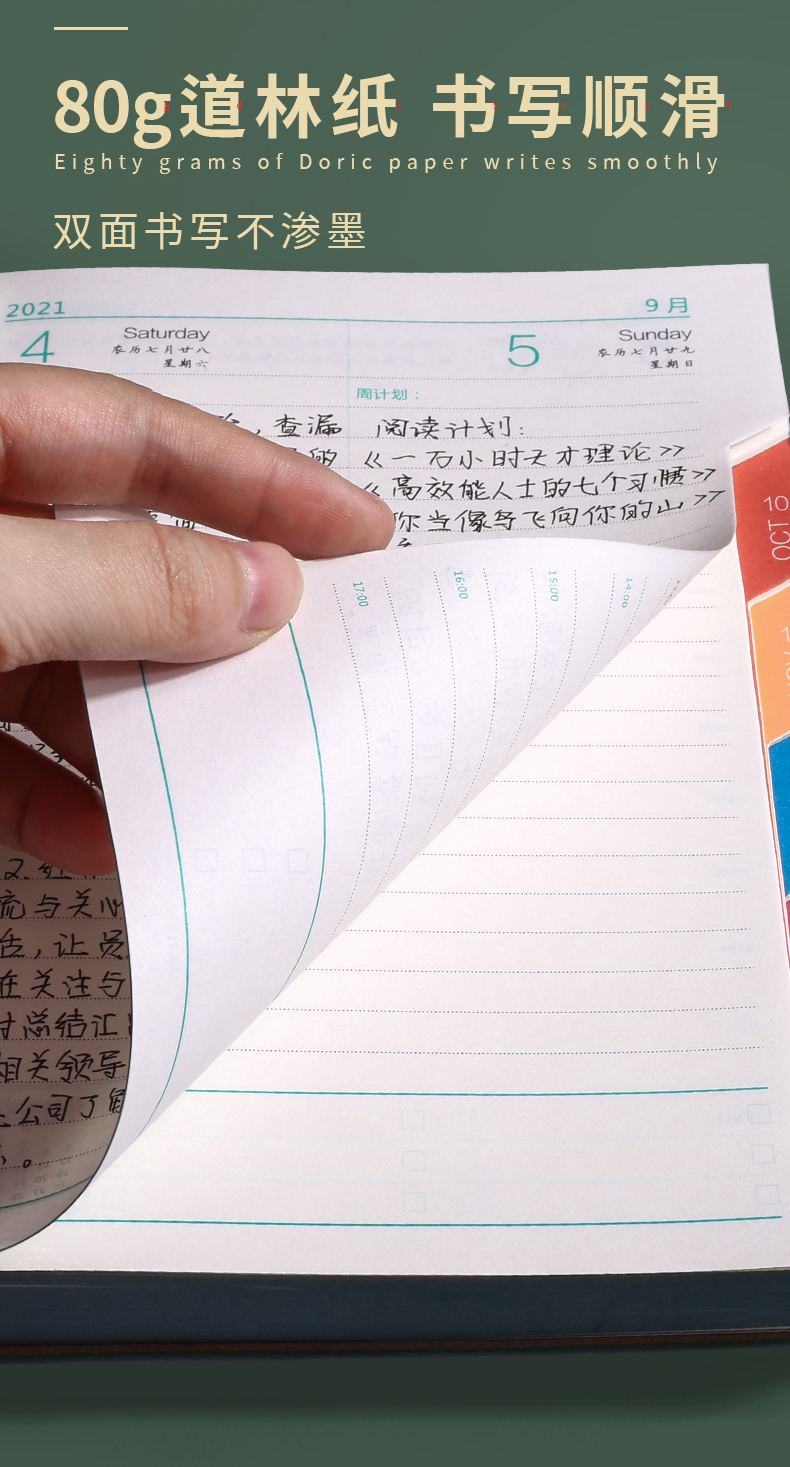 80g道林纸 书写顺滑
Eighty grams of Doric paper writes smoothly
双面书写不渗墨
2021
9月
4
Saturday
农历七月廿八
星期六
5
Sunday
农历七月廿九
星期日
周计划：
，查漏
阅读计划：
的
《一万小时天才理论》
《高效能人士的七个习惯》
间
你当像鸟飞向你的山》
10
OCT
17:00
16:00
15:00
14:00
流与关心
告，让员
在关注与
时总结汇
相关领导
公司了解
。